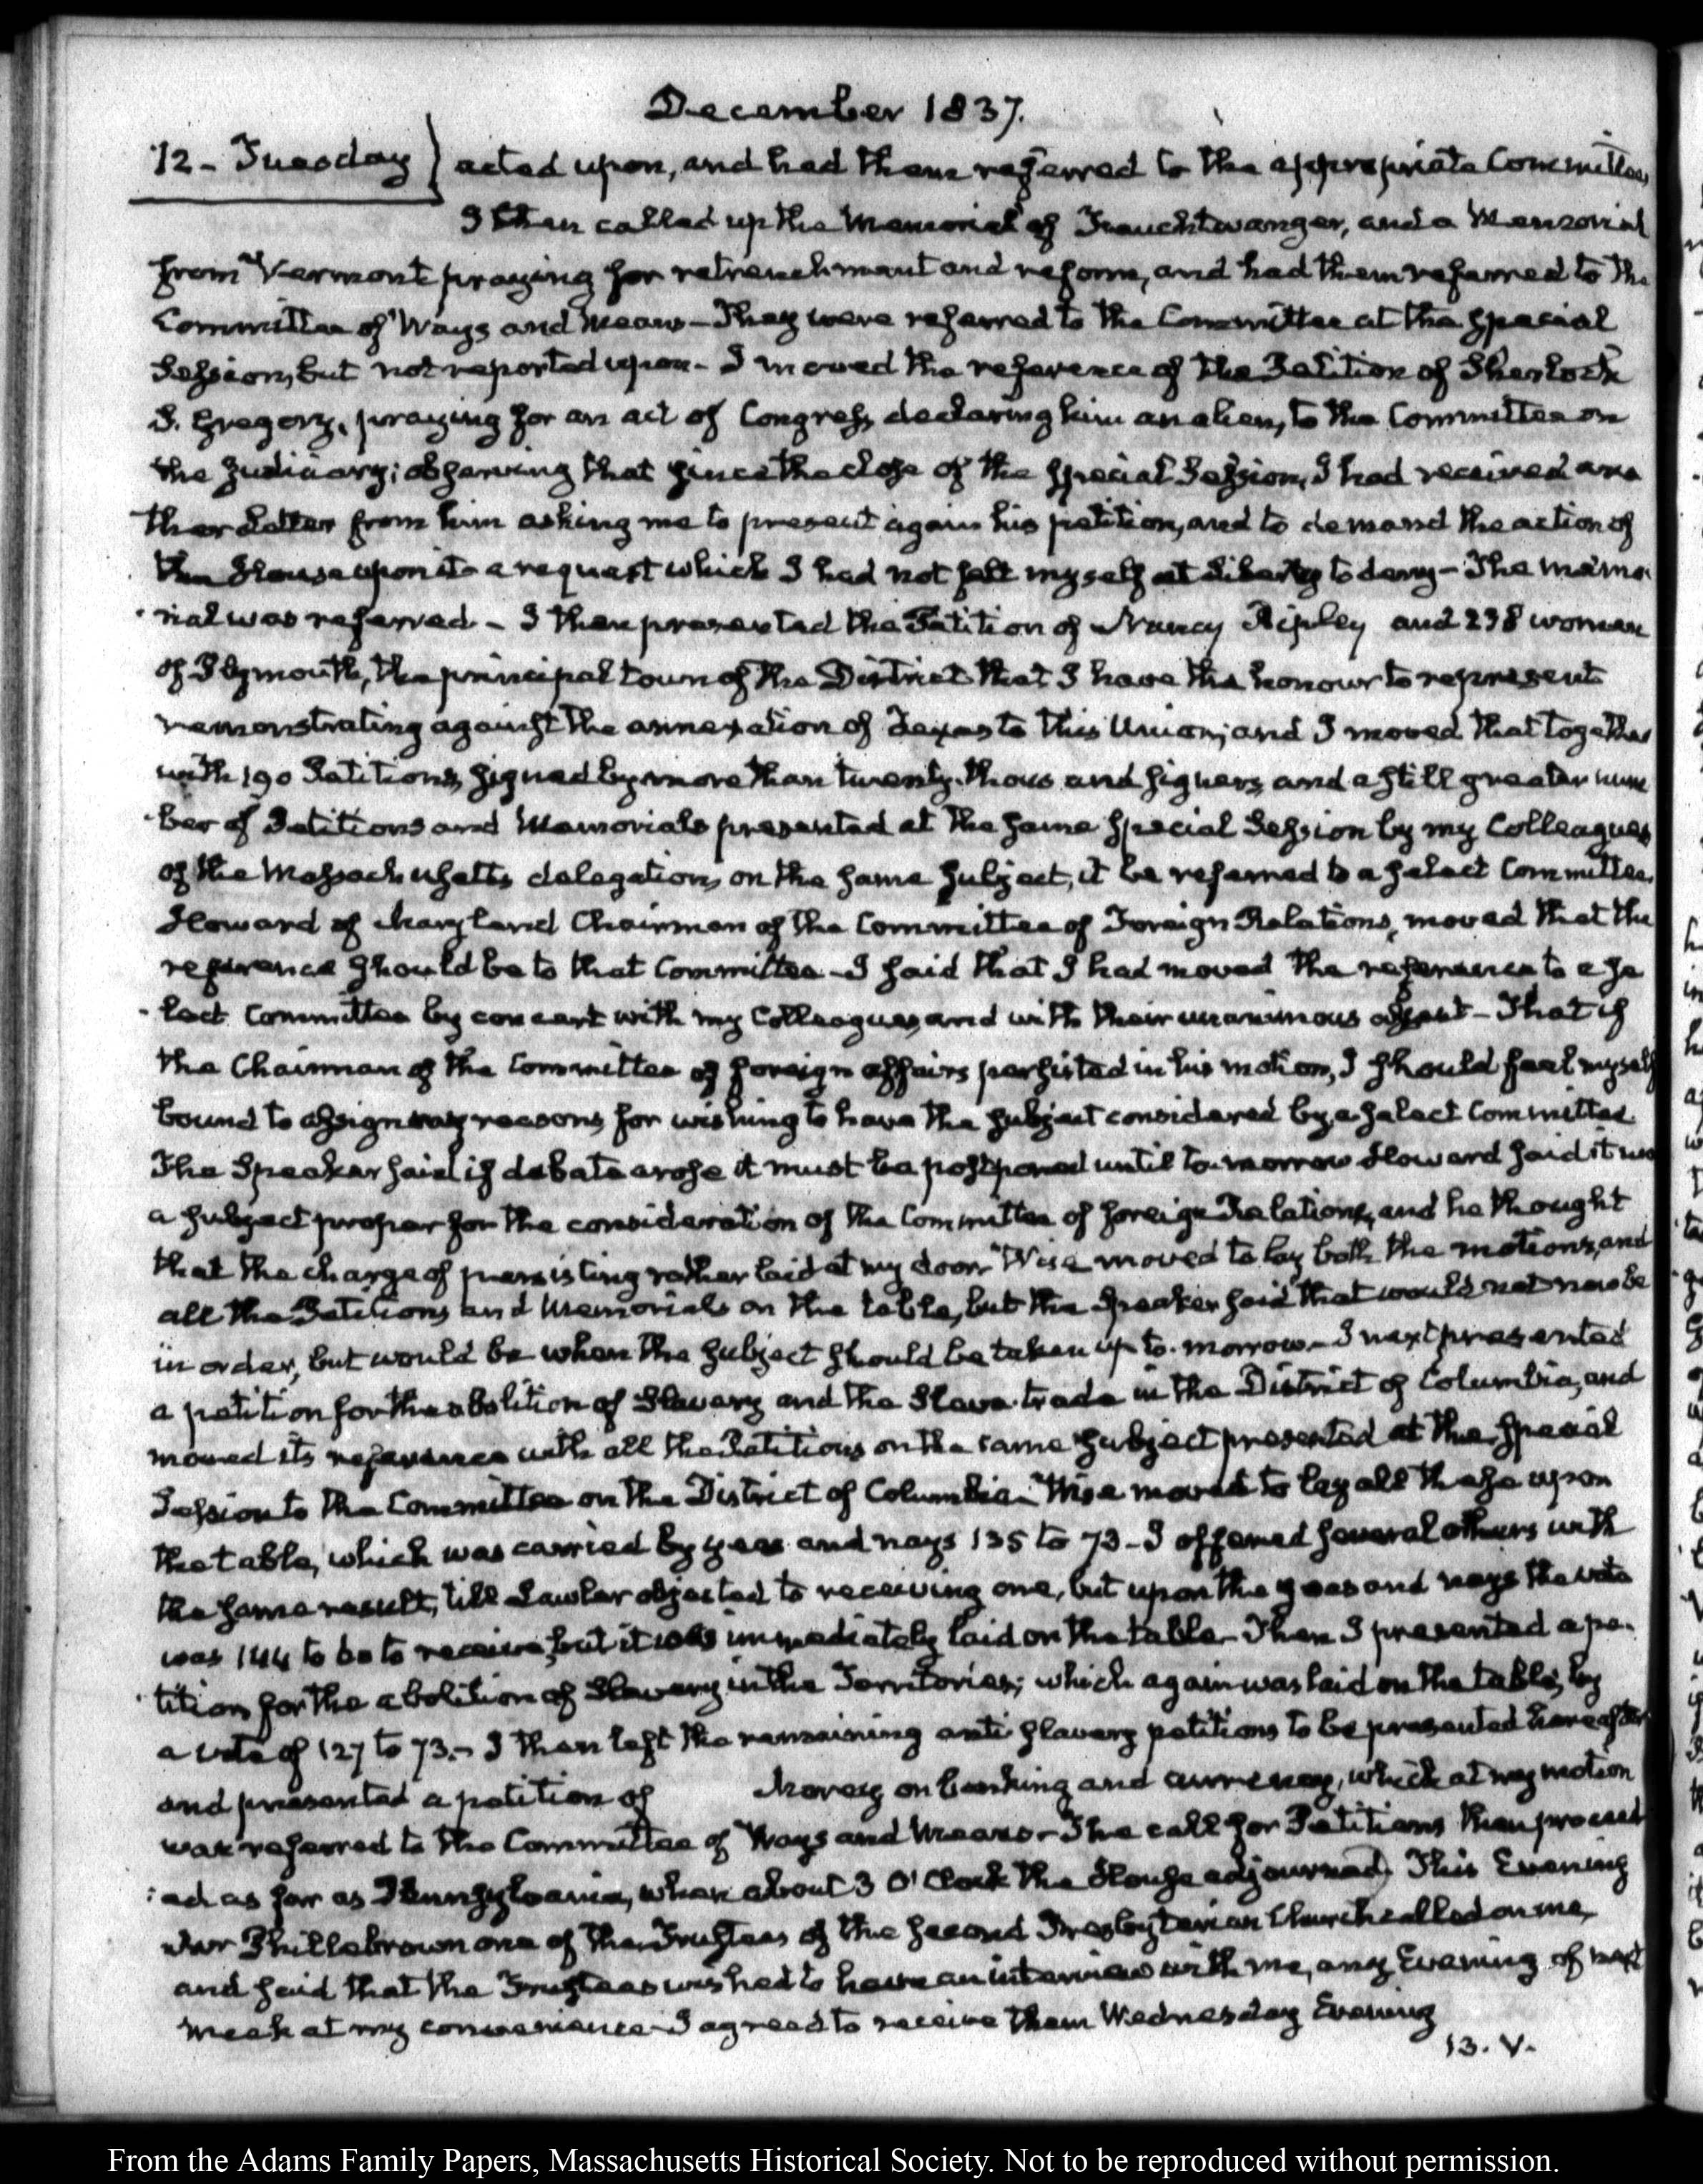 December 1837.
12 - Tuesday } acted upon, and had them referred to the appropriate Committees
I then called up the Memorial of Feuchtwanger, and a Memorial
from Vermont praying for retrenchment and reform, and had them referred to the
Committee of Ways and Means - They were referred to the Committee at the Special
Session, but not reported upon - I moved the reference of the Petition of Sherlock
S. Gregory, praying for an act of Congress, declaring him an alien, to the Committee on
the Judiciary; observing that since the close of the Special Session, I had received ano
ther Letter from him asking me to present again his petition, and to demand the action of
the House upon it a request which I had not felt myself at liberty to deny - The memo
rial was referred - I then presented the Petition of Nancy Ripley and 238 women
of Plymouth, the principal town of the District that I have the honour to represent
remonstrating against the annexation of Texas to this Union; and I moved that together
with 190 Petitions, signed by more than twenty thousand signers, and a still greater num
ber of Petitions and Memorials presented at the same Special Session by my Colleagues
of the Massachusetts delegation, on the same subject, it be referred to a select Committee.
Howard of Maryland Chairman of the Committee of Foreign Relations, moved that the
reference should be to that Committee - I said that I had moved the reference to a se
lect Committee by concert with my Colleagues, and with their unanimous assent - That if
the Chairman of the Committee of foreign affairs persisted in his motion, I should feel myself
bound to assign my reasons for wishing to have the subject considered by a select Committee
The Speaker said if debate arose it must be postponed until to-morrow Howard said it was
a subject proper for the consideration of the Committee of foreign Relations, and he thought
that the charge of persisting rather laid at my door Wise moved to lay both the motions, and
all the Petitions and Memorials on the table, but the Speaker said that would not now be
in order, but would be when the subject should be taken up to-morrow - I next presented
a petition for the abolition of Slavery and the Slave-trade in the District of Columbia, and
moved its reference with all the Petitions on the same subject presented at the Special
Session to the Committee on the District of Columbia. Wise moved to lay all these upon
the table, which was carried by yeas and nays 135 to 73 - I offered several others with
the same result, till Lawler objected to receiving one, but upon the yeas and nays the vote
was 144 to 60 to receive, but it was immediately laid on the table - Then I presented a pe-
tition for the abolition of Slavery in the Territories; which again was laid on the table, by
a vote of 127 to 73. - I then left the remaining anti slavery petitions to be presented hereafter
and presented a petition of Morey on banking and currency, which at my motion
was referred to the Committee of Ways and Means - The call for Petitions then proceed
ed as far as Pennsylvania, when about 3 O'Clock the House adjourned. This Evening
Mr Phillebrown one of the Trustees of the second Presbyterian Church called on me,
and said that the Trustees wished to have an interview with me, any Evening of next
week at my convenience - I agreed to receive them Wednesday Evening
13. V.
From the Adams Family Papers, Massachusetts Historical Society. Not to be reproduced without permission.